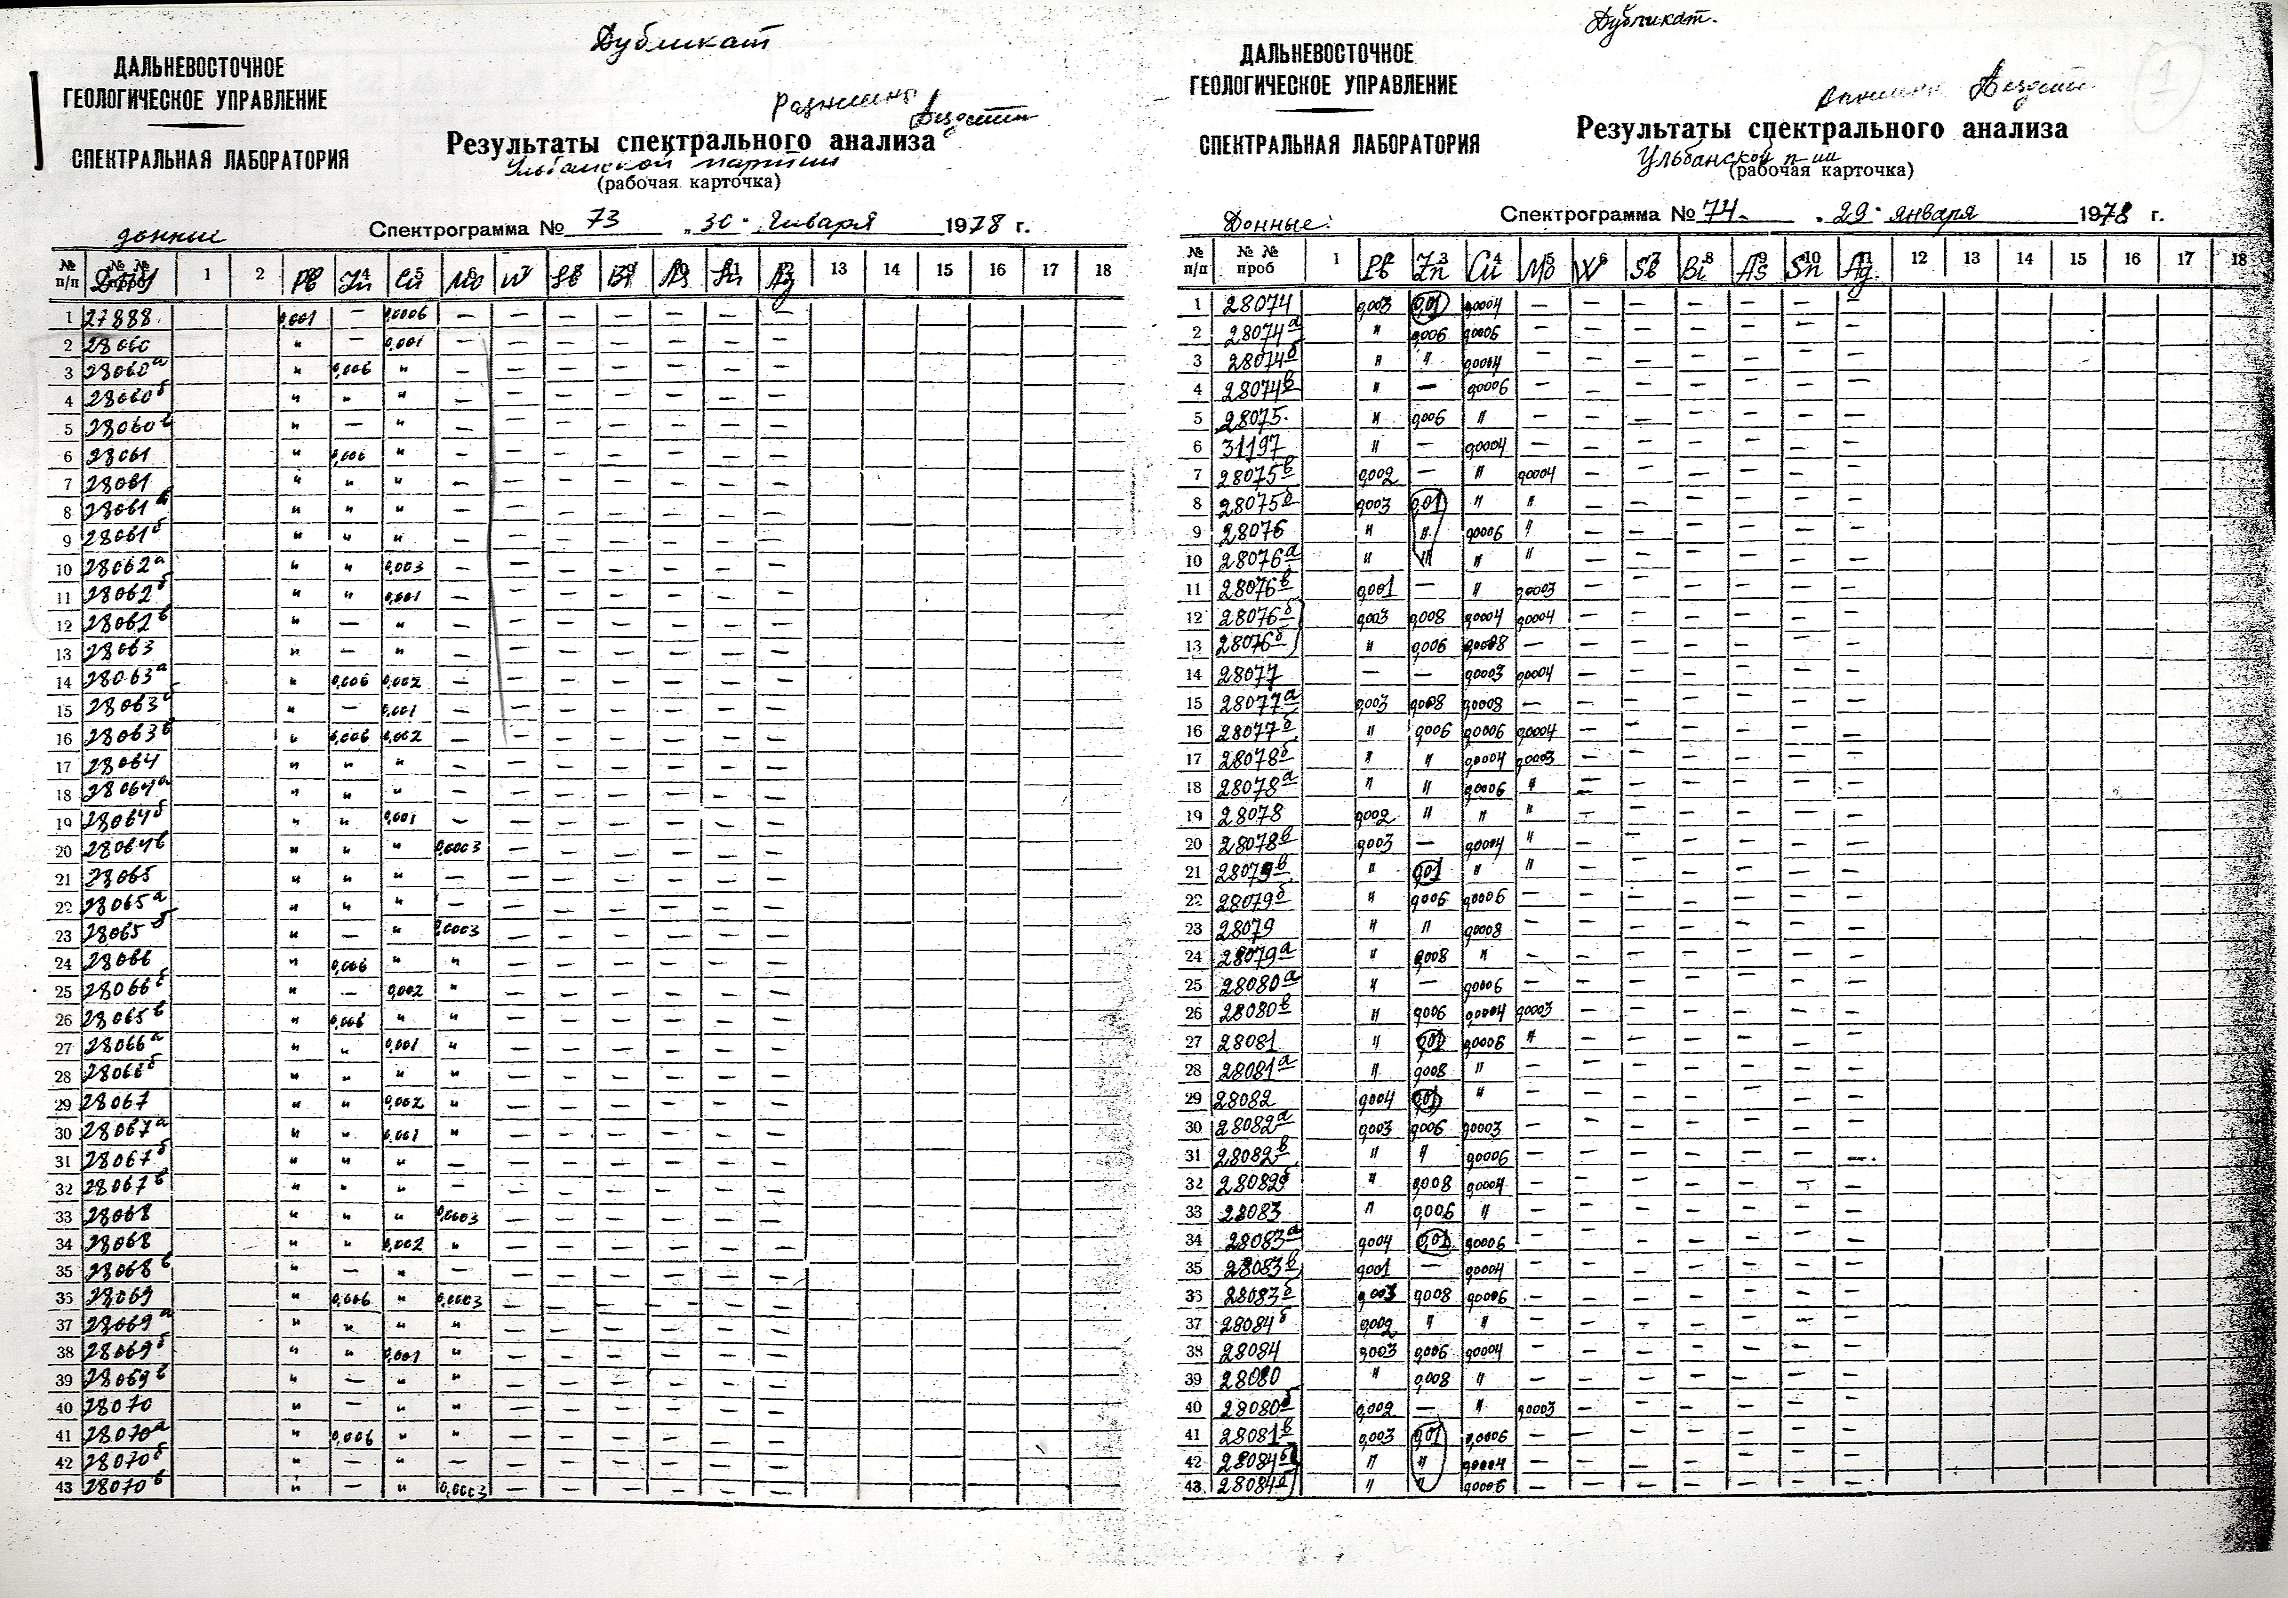 Дубликат
ДАЛЬНЕВОСТОЧНОЕ
ГЕОЛОГИЧЕСКОЕ УПРАВЛЕНИЕ
СПЕКТРАЛЬНАЯ ЛАБОРАТОРИЯ
Результаты спектрального анализа
Ульбанской партии
(рабочая карточка)
донные
Спектрограмма № 73 „30" Января 1978 г.
№ п/п № № проб 1 2 Pb Zn Cu Mo W Sb Bi As Sn Ag 13 14 15 16 17 18
1 27888 0,001 — 0,0006 — — — — — — —
2 28060 " — 0,001 — — — — — — —
3 28060а " 0,006 " — — — — — — —
4 28060б " " " — — — — — — —
5 28060в " — " — — — — — — —
6 28061 " 0,006 " — — — — — — —
7 28061 " " " — — — — — — —
8 28061в " " " — — — — — — —
9 28061б " " " — — — — — — —
10 28062а " " 0,003 — — — — — — —
11 28062б " " 0,001 — — — — — — —
12 28062в " — " — — — — — — —
13 28063 " — " — — — — — — —
14 28063а " 0,006 0,002 — — — — — — —
15 28063б " — 0,001 — — — — — — —
16 28063в " 0,006 0,002 — — — — — — —
17 28064 " " " — — — — — — —
18 28064а " " " — — — — — — —
19 28064б " " 0,001 — — — — — — —
20 28064в " " " 0,0003 — — — — — —
21 28065 " " " — — — — — — —
22 28065а " " " — — — — — — —
23 28065б " — " 0,0003 — — — — — —
24 28066 " 0,006 " " — — — — — —
25 28066б " — 0,002 " — — — — — —
26 28065в " 0,006 " " — — — — — —
27 28066а " " 0,001 " — — — — — —
28 28066б " " " " — — — — — —
29 28067 " " 0,002 " — — — — — —
30 28067а " " 0,001 " — — — — — —
31 28067б " " " — — — — — — —
32 28067в " " " — — — — — — —
33 28068 " " " 0,0003 — — — — — —
34 28068 " " 0,002 " — — — — — —
35 28068в " — " — — — — — — —
36 28069 " 0,006 " 0,0003 — — — — — —
37 28069а " " " " — — — — — —
38 28069б " " 0,001 " — — — — — —
39 28069в " — " " — — — — — —
40 28070 " — " " — — — — — —
41 28070а " 0,006 " " — — — — — —
42 28070б " — " — — — — — — —
43 28070в " — " 0,0003 — — — — — —
Дубликат.
ДАЛЬНЕВОСТОЧНОЕ
ГЕОЛОГИЧЕСКОЕ УПРАВЛЕНИЕ
СПЕКТРАЛЬНАЯ ЛАБОРАТОРИЯ
1
Результаты спектрального анализа
Ульбанской п-ии
(рабочая карточка)
Донные.
Спектрограмма № 74. „29" января 1978 г.
№ п/п № № проб 1 Pb Zn Cu Mo W Sb Bi As Sn Ag 12 13 14 15 16 17 18
1 28074 0,003 0,01 0,0004 — — — — — — —
2 28074а " 0,006 0,0006 — — — — — — —
3 28074б " " 0,0004 — — — — — — —
4 28074в " — 0,0006 — — — — — — —
5 28075. " 0,006 " — — — — — — —
6 31197 " — 0,0004 — — — — — — —
7 28075в 0,002 — " 0,0004 — — — — — —
8 28075б 0,003 0,01 " " — — — — — —
9 28076 " " 0,0006 " — — — — — —
10 28076а " " " " — — — — — —
11 28076в 0,001 — " 0,0003 — — — — — —
12 28076б 0,003 0,008 0,0004 0,0004 — — — — — —
13 28076б " 0,006 0,0008 — — — — — — —
14 28077 — — 0,0003 0,0004 — — — — — —
15 28077а 0,003 0,008 0,0008 — — — — — — —
16 28077б " 0,006 0,0006 0,0004 — — — — — —
17 28078б " " 0,0004 0,0003 — — — — — —
18 28078а " " 0,0006 " — — — — — —
19 28078 0,002 " " " — — — — — —
20 28078в 0,003 — 0,0004 " — — — — — —
21 28079в " 0,01 " " — — — — — —
22 28079б " 0,006 0,0006 — — — — — — —
23 28079 " " 0,0008 — — — — — — —
24 28079а " 0,008 " — — — — — — —
25 28080а " — 0,0006 — — — — — — —
26 28080в " 0,006 0,0004 0,0003 — — — — — —
27 28081 " 0,01 0,0006 " — — — — — —
28 28081а " 0,008 " — — — — — — —
29 28082 0,004 0,01 " — — — — — — —
30 28082а 0,003 0,006 0,0003 — — — — — — —
31 28082в " " 0,0006 — — — — — — —
32 28082б " 0,008 0,0004 — — — — — — —
33 28083 " 0,006 " — — — — — — —
34 28083а 0,004 0,01 0,0006 — — — — — — —
35 28083в 0,001 — 0,0004 — — — — — — —
36 28083б 0,003 0,008 0,0006 — — — — — — —
37 28084б 0,002 " " — — — — — — —
38 28084 0,003 0,006 0,0004 — — — — — — —
39 28080 " 0,008 " — — — — — — —
40 28080б 0,002 — " 0,0003 — — — — — —
41 28081в 0,003 0,01 0,0006 — — — — — — —
42 28084б " " 0,0004 — — — — — — —
43 28084б " " 0,0006 — — — — — — —